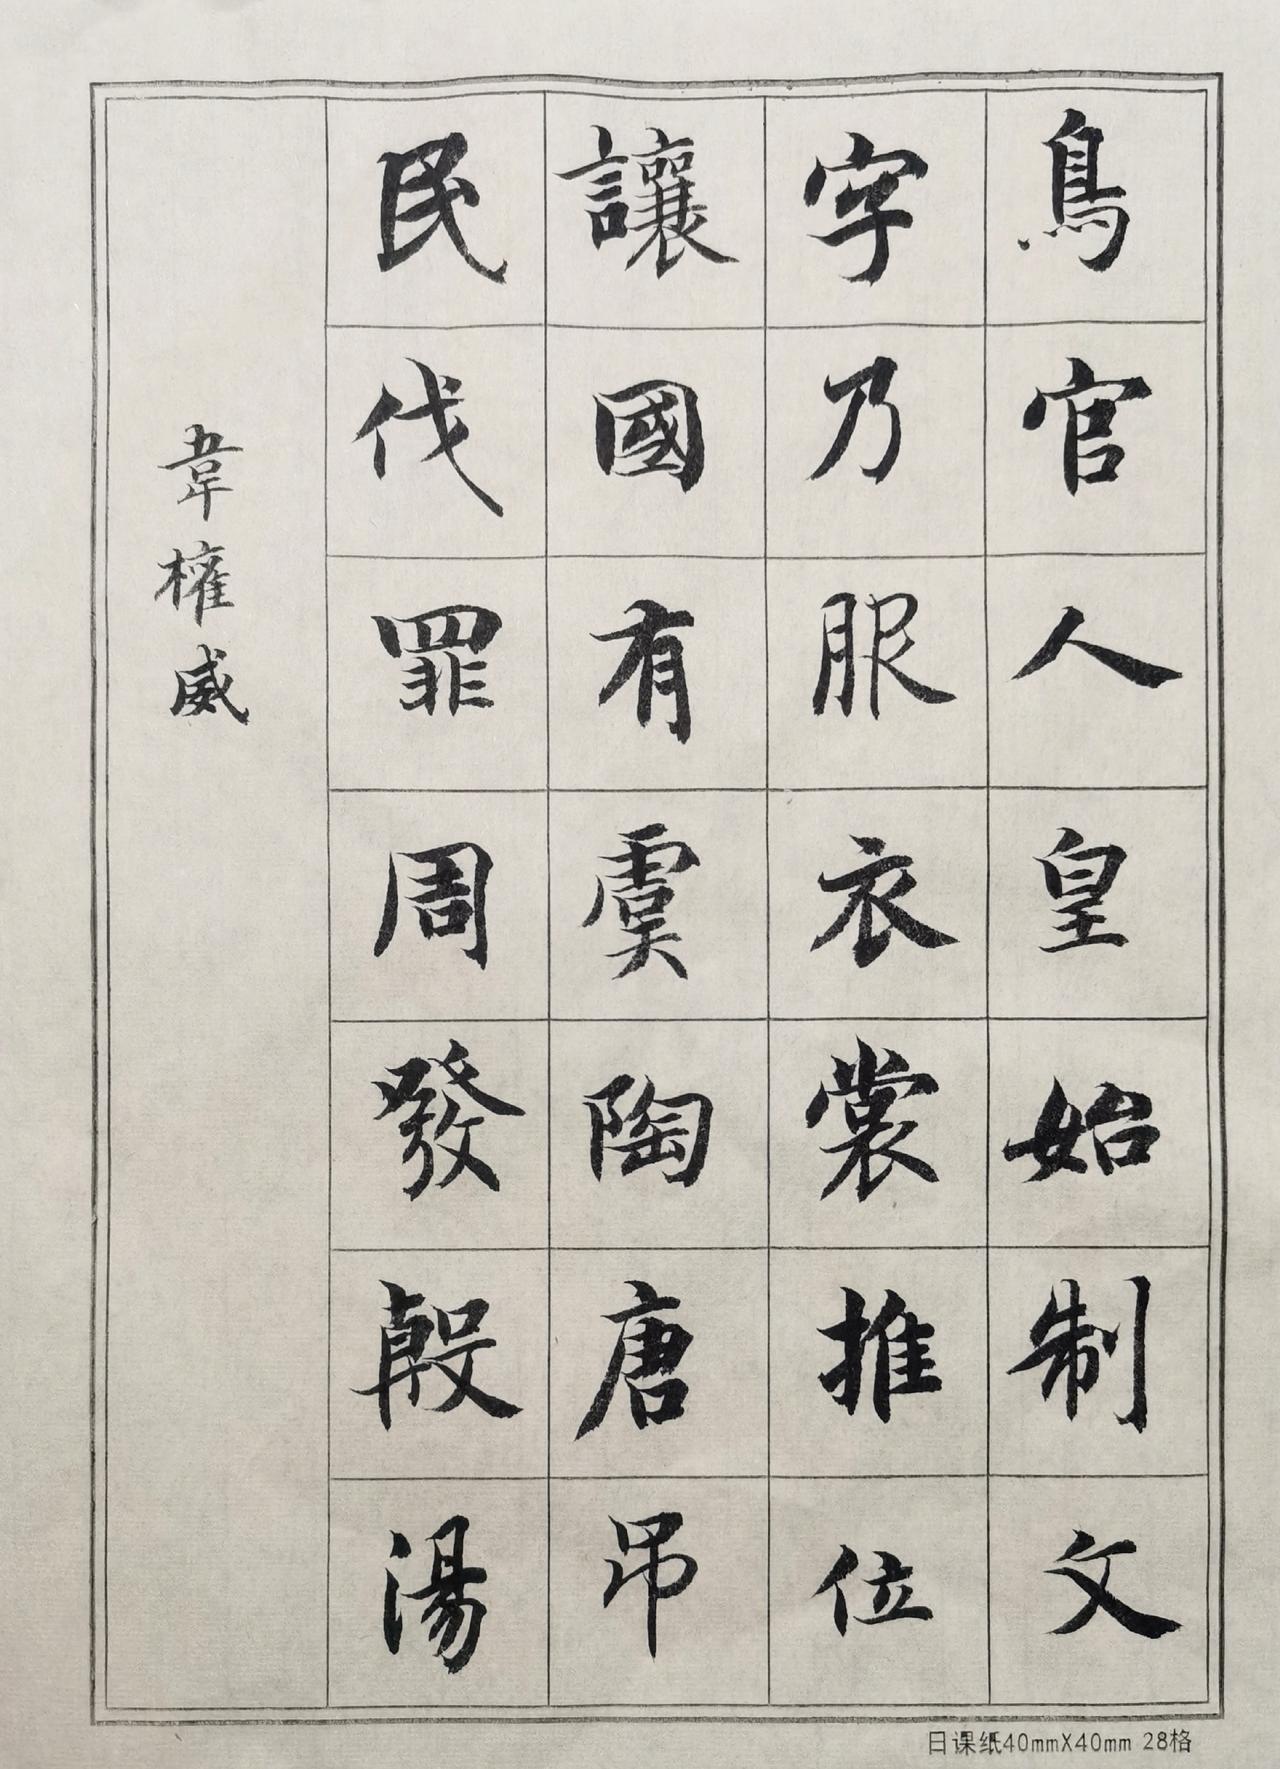 鳥官人皇始制文
字乃服衣裳推位
讓國有虞陶唐吊
民伐罪周發殷湯
韋權威
日课纸40mmX40mm 28格